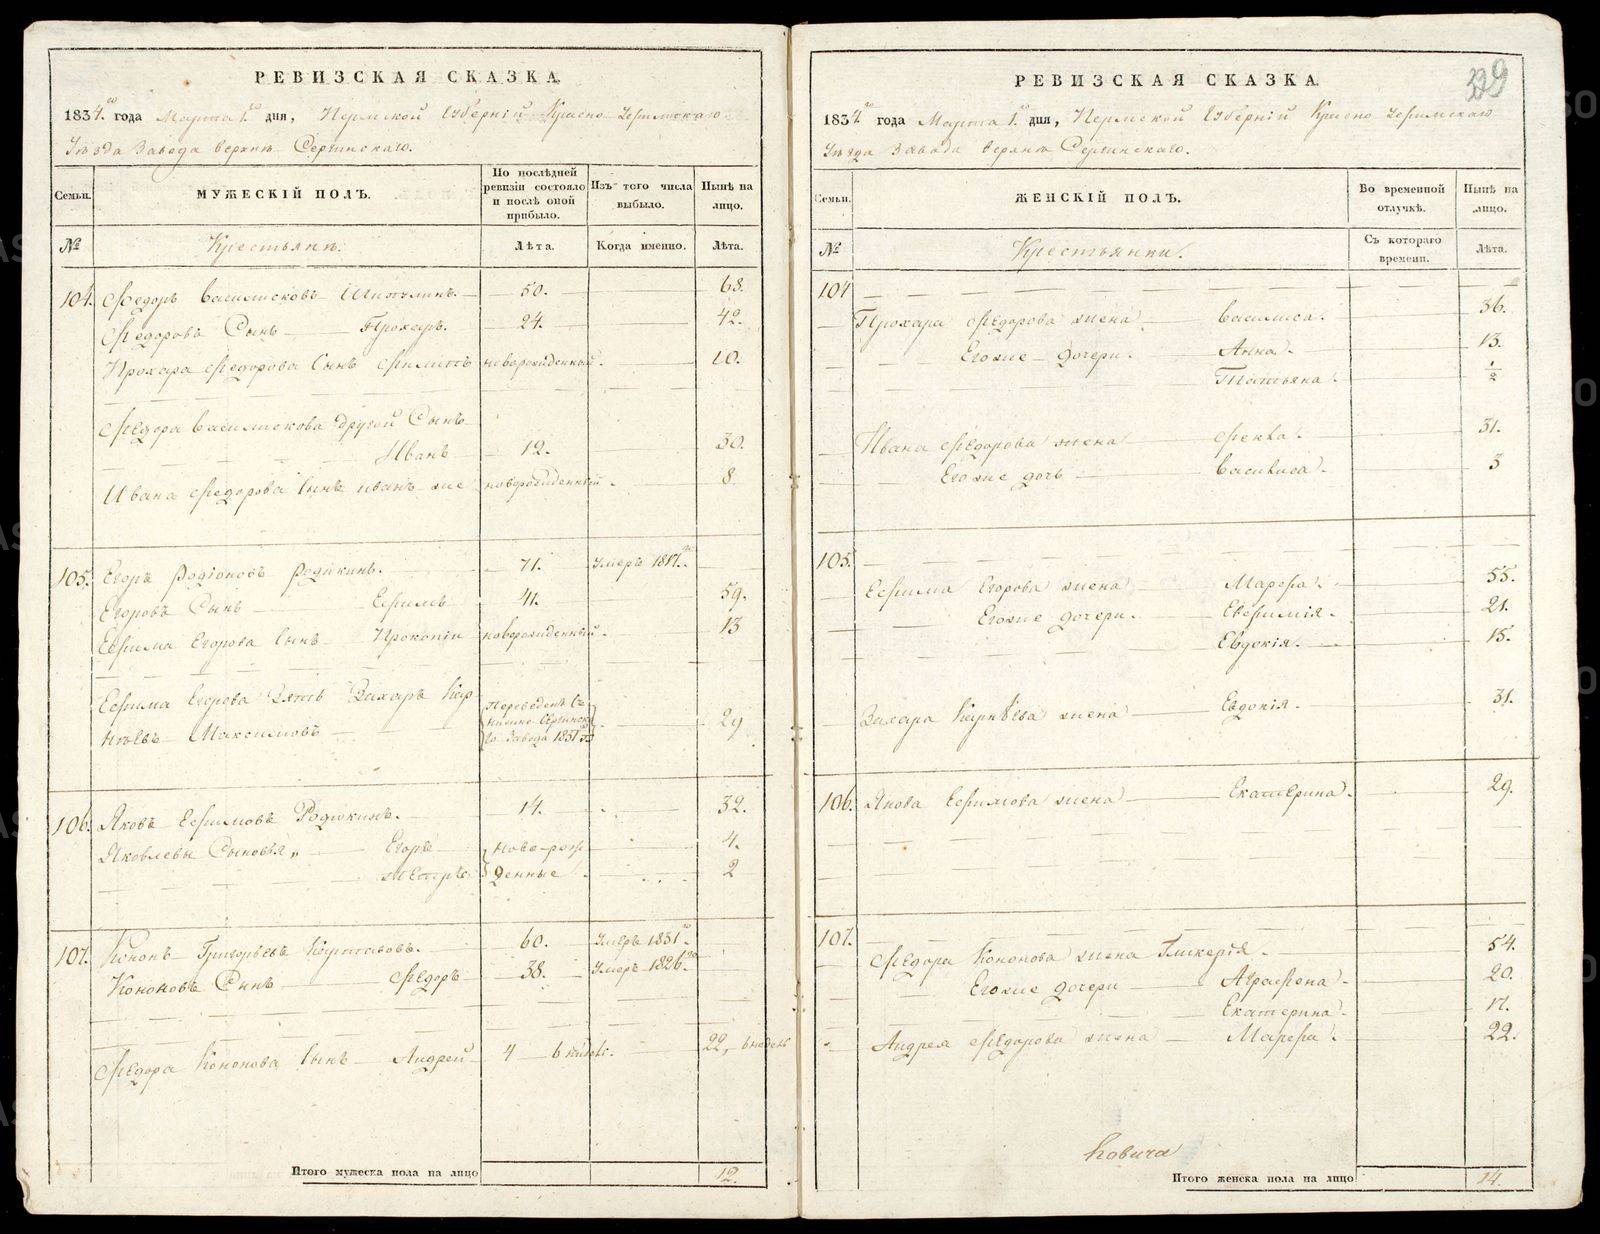 РЕВИЗСКАЯ СКАЗКА.
1834.го года Марта 1.го дня, Пермской Губерніи Красно Уфимскаго
Уѣзда Завода Верхне Сергинскаго.
Семьи.
МУЖЕСКІЙ ПОЛЪ.
По последней ревизіи состояло и послѣ оной прибыло.
Изъ того числа выбыло.
Нынѣ на лицо.
№
Крестьяне.
Лѣта.
Когда именно.
Лѣта.
104. Федоръ Васильевъ 50. 68.
Федоровъ Сынъ Прохоръ. 24. 42.
Прохора Федорова Сынъ Филипъ новорожденный. 10.
Федора Васильева другой Сынъ
Иванъ 12. 30.
Ивана Федорова Сынъ Иванъ же новорожденный. 8.
105. Егоръ Родіоновъ Родикинъ. 71. Умеръ 1817.го
Егоровъ Сынъ Ефимъ 41. 59.
Ефима Егорова Сынъ Прокопіи новорожденный. 13
Ефима Егорова Зять Захаръ Кар
нѣевъ Максимовъ Переведенъ Съ Нижне Сергинска го Завода 1831 го 29
106. Яковъ Ефимовъ Родюкинъ. 14. 32.
Яковлевы Сыновья, Егоръ Ново-рож 4.
Петръ денные 2
107. Кононъ Григорьевъ 60. Умеръ 1831го
Кононовъ Сынъ Федоръ 38. Умеръ 1826.го
Федора Кононова Сынъ Андрей 4 22,
Итого мужеска пола на лицо 12.
329
РЕВИЗСКАЯ СКАЗКА.
1834.го года Марта 1.го дня, Пермской Губерніи Красно Уфимскаго
Уѣзда Завода Верхне Сергинскаго.
Семьи.
ЖЕНСКІЙ ПОЛЪ.
Во временной отлучкѣ.
Нынѣ на лицо.
№
Крестьянки.
Съ котораго времени.
Лѣта.
104
Прохора Федорова жена Василиса. 36.
Егоже дочери. Анна. 13.
Татьяна. 1/2
Ивана Федорова жена Фекла. 31.
Егоже дочь Василиса. 3
105.
Ефима Егорова жена Марфа. 55.
Егоже дочери. Евфимія. 21.
Евдокія. 15.
Захара Карнѣева жена Евдокія. 31.
106. Якова Ефимова жена Екатерина. 29.
107.
Федора Кононова жена Гликерія. 54.
Егоже дочери Аграфена. 20.
Екатерина. 17.
Андрея Федорова жена Марфа. 22.
ковича
Итого женска пола на лицо 14.